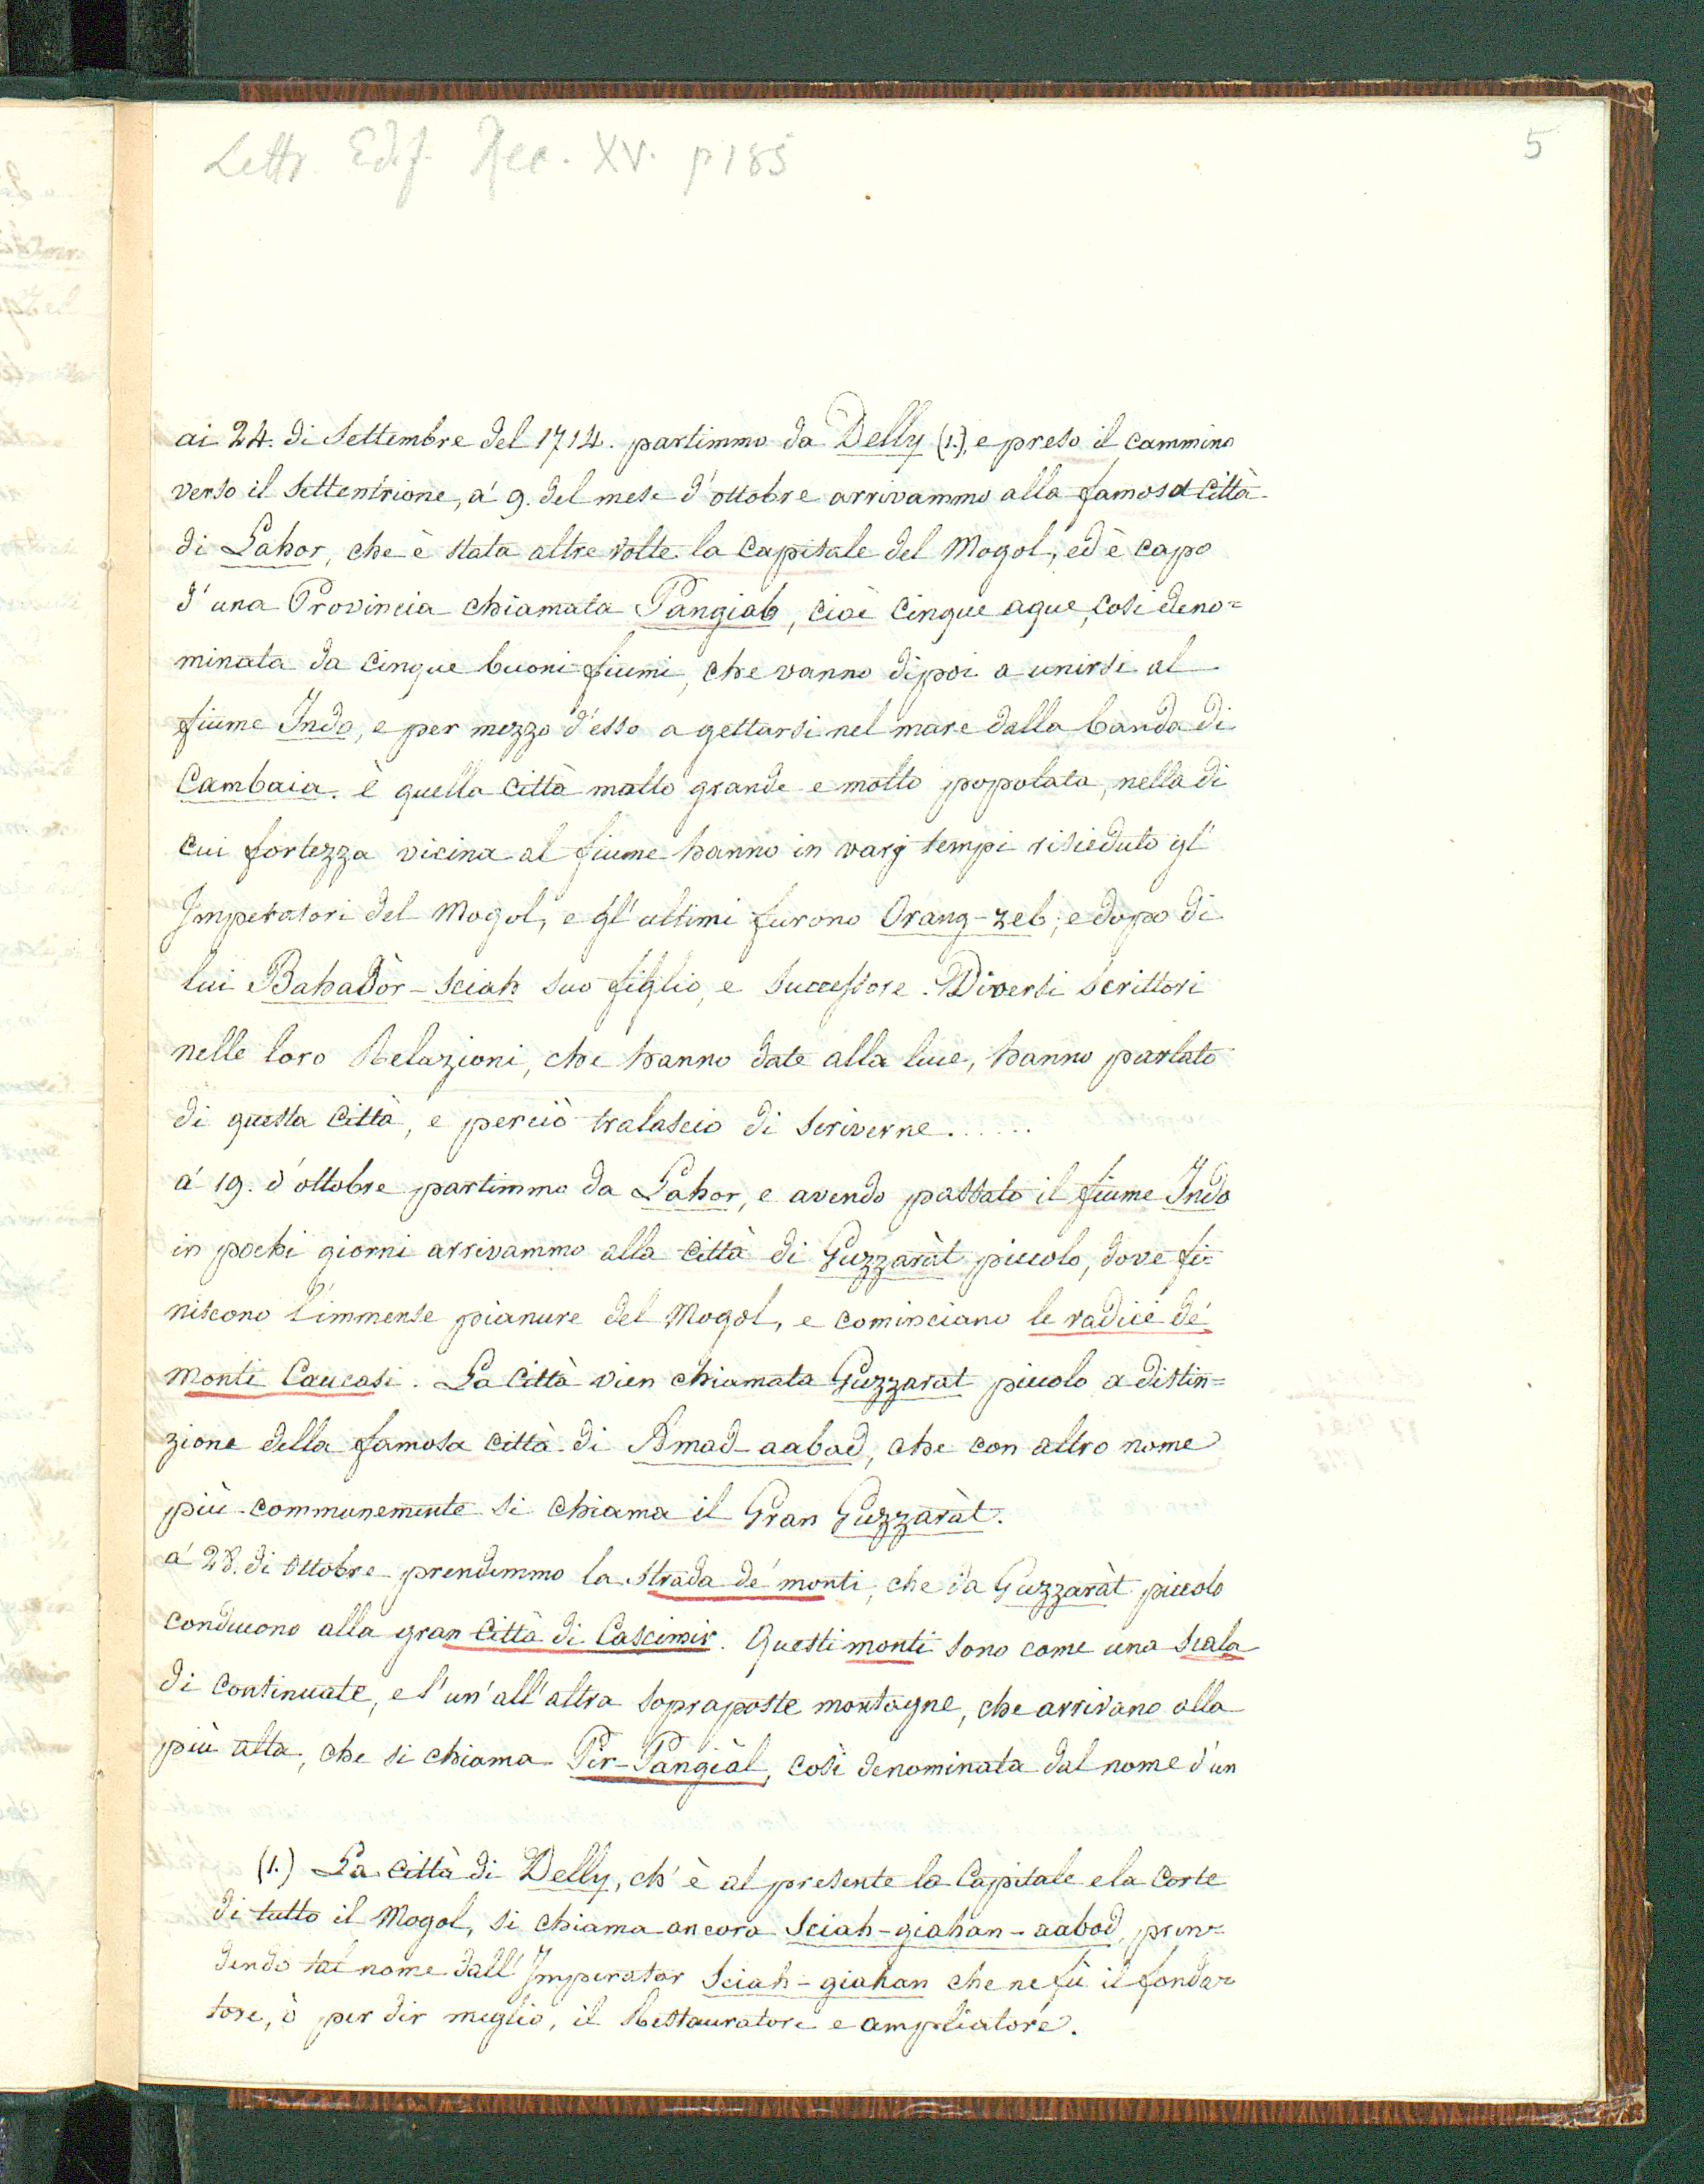 Lettr. Edif. Rec. XV. p 185
5
ai 24. di Settembre del 1714. partimmo da Delly (1.), e preso il cammino
verso il Settentrione, a' 9. del mese d'ottobre arrivammo alla famosa Città
di Lahor, che è stata altre volte la Capitale del Mogol, ed è capo
d'una Provincia chiamata Pangiab, cioè cinque aque, così deno=
minata da cinque buoni fiumi, che vanno dipoi a unirsi al
fiume Indo, e per mezzo d'esso a gettarsi nel mare dalla banda di
Cambaia. è quella Città molto grande e molto popolata, nella di
cui fortezza vicina al fiume hanno in varj tempi risieduto gl'
Imperatori del Mogol, e gl'ultimi furono Orang-zeb, e dopo di
lui Bahadòr-sciah suo figlio, e successore. Diversi scrittori
nelle loro Relazioni, che hanno date alla luce, hanno parlato
di questa Città, e perciò tralascio di scriverne......
a' 19. d'ottobre partimmo da Lahor, e avendo passato il fiume Indo
in pochi giorni arrivammo alla Città di Guzzaràt piccolo, dove fi=
niscono l'immense pianure del Mogol, e cominciano le radici de'
monti Caucasi. La Città vien chiamata Guzzarat piccolo a distin=
zione della famosa città di Amad-aabad, che con altro nome
più communemente si chiama il Gran Guzzaràt.
a' 28. di Ottobre prendemmo la strada de' monti, che da Guzzaràt piccolo
conducono alla gran Città di Cascimir. Questi monti sono come una scala
di continuate, e l'un' all'altra sopraposte montagne, che arrivano alla
più alta, che si chiama Pir-Pangiàl, così denominata dal nome d'un
(1.) La città di Delly, ch'è al presente la Capitale e la Corte
di tutto il Mogol, si chiama ancora Sciah-giahan-aabad, pren=
dendo tal nome dall'Imperator Sciah-giahan che ne fù il fonda=
tore, ò per dir meglio, il Restauratore e ampliatore.